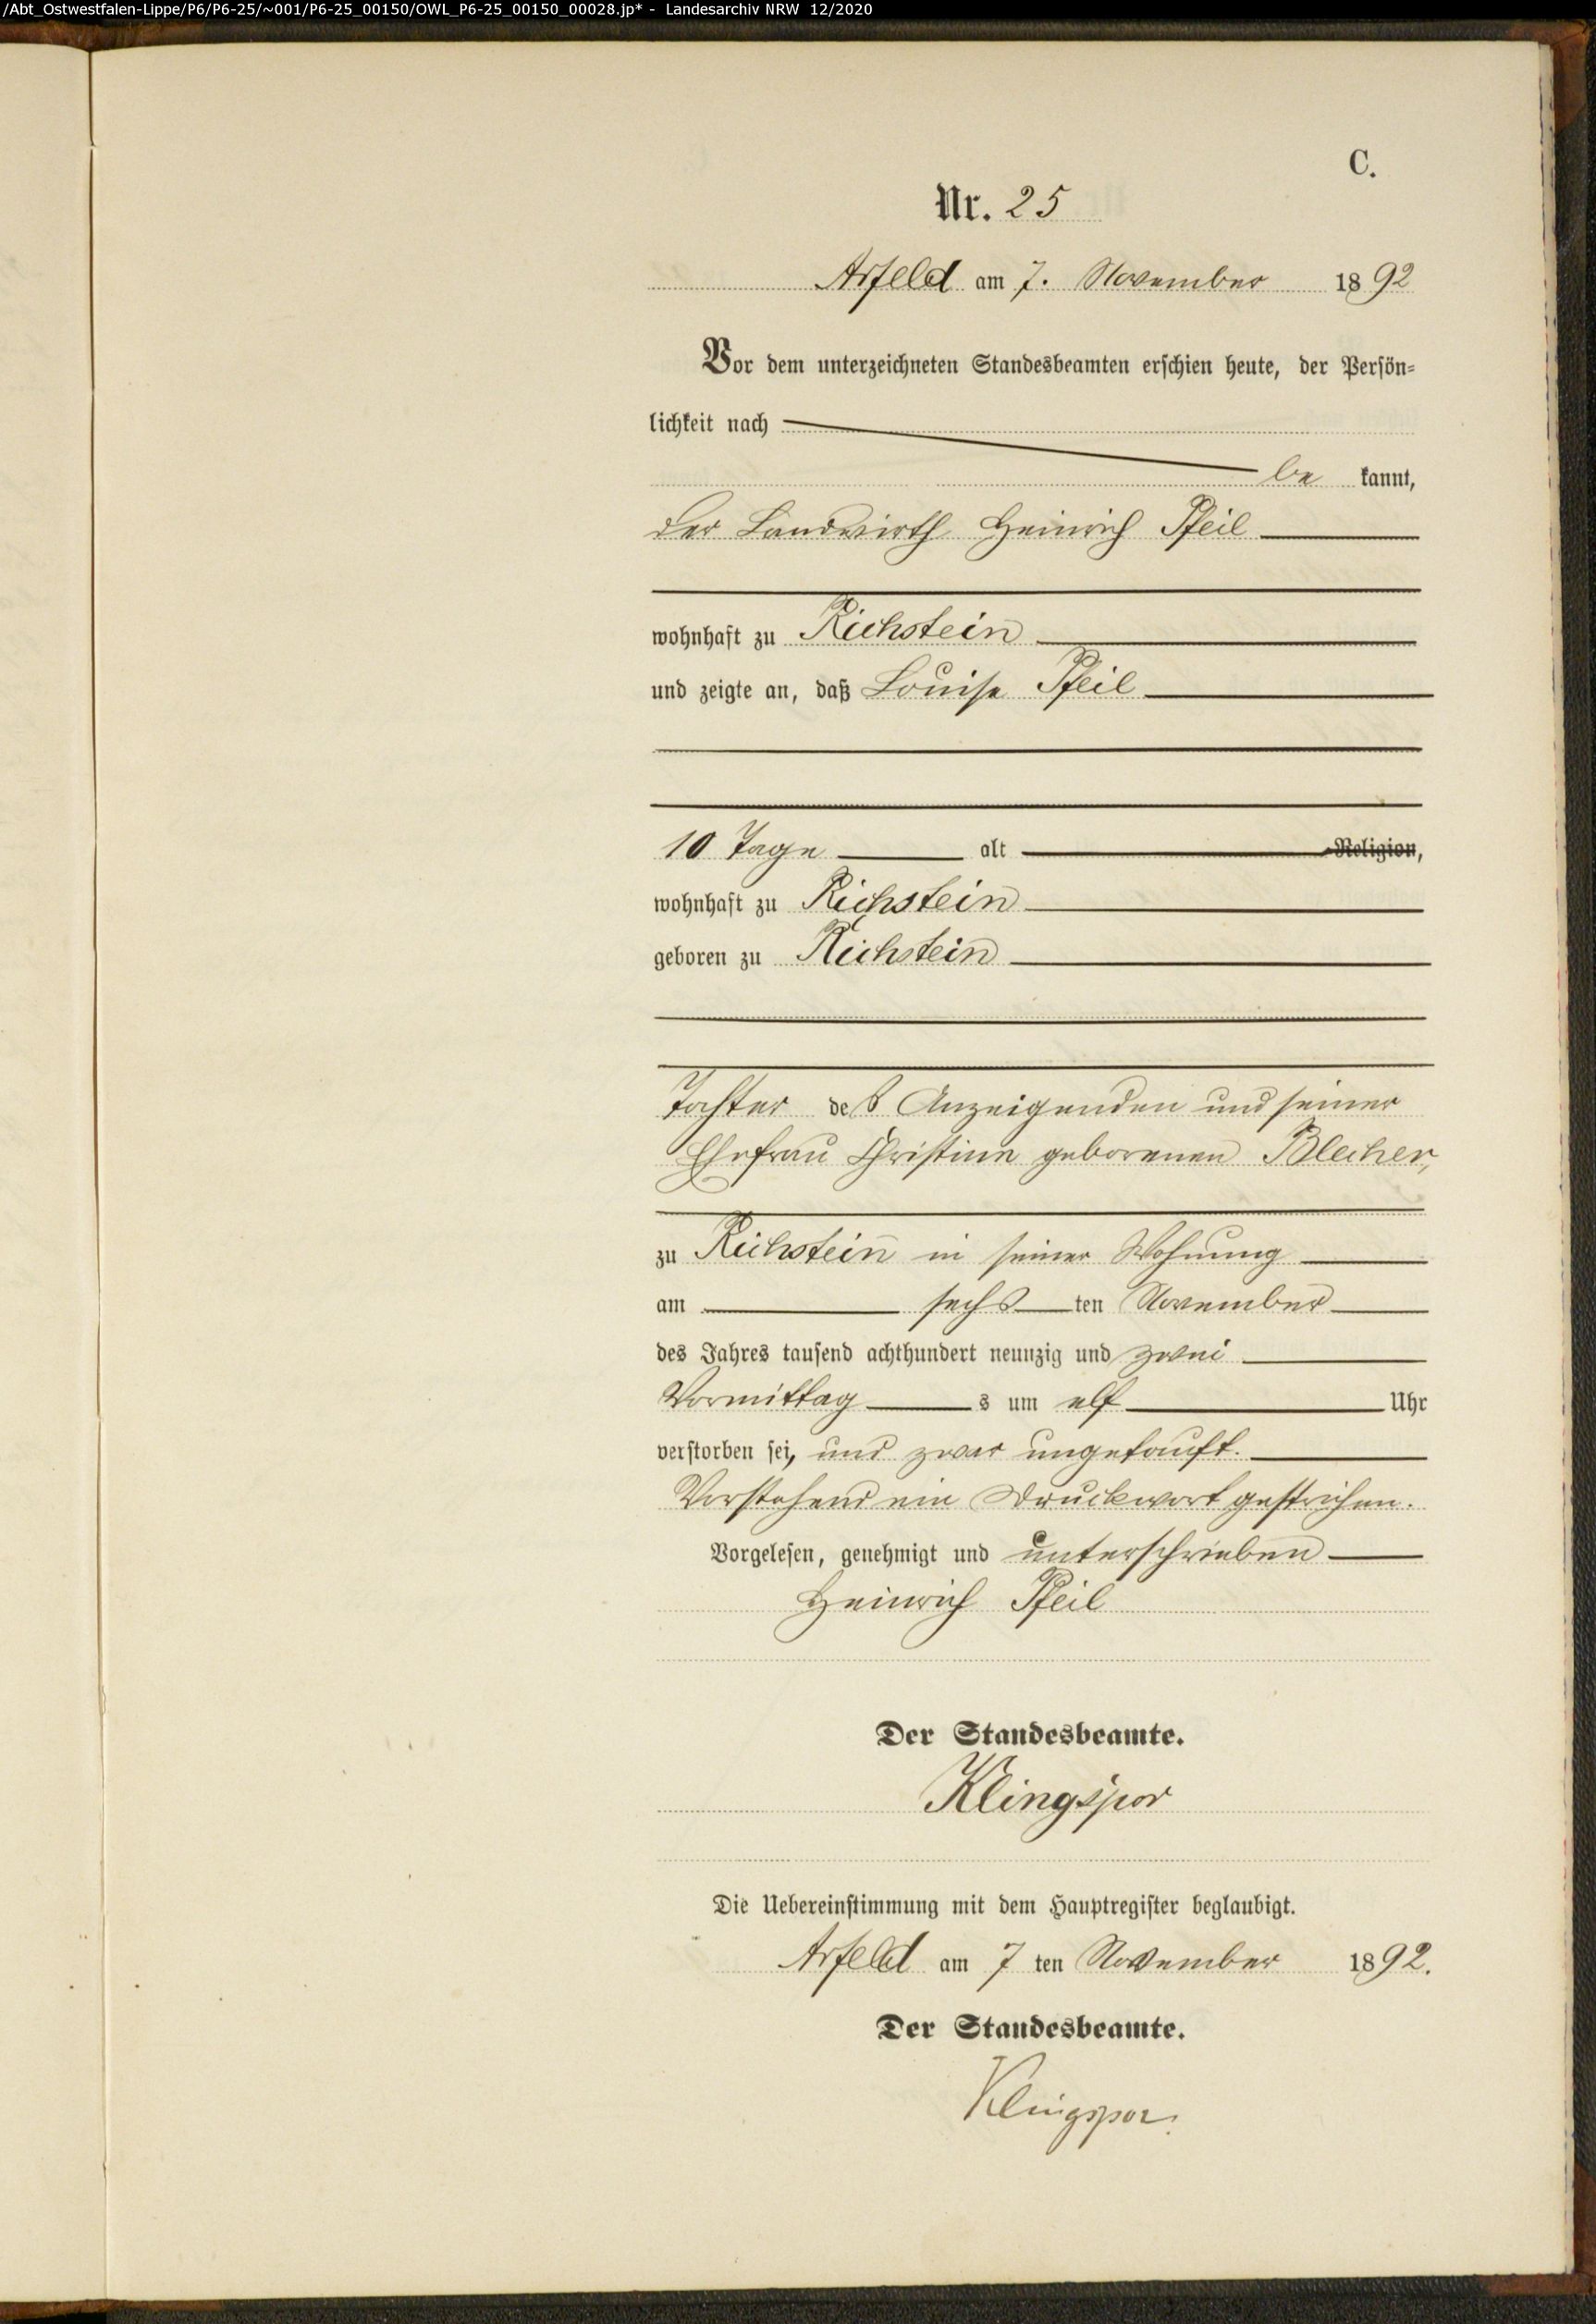 /Abt_Ostwestfalen-Lippe/P6/P6-25/~001/P6-25_00150/OWL_P6-25_00150_00028.jp* - Landesarchiv NRW 12/2020
C.
Nr. 25
Arfeld am 7. November 1892
Vor dem unterzeichneten Standesbeamten erschien heute, der Persön-
lichkeit nach
be kannt,
der Landwirth Heinrich Pfeil
wohnhaft zu Richstein
und zeigte an, daß Louise Pfeil
10 Tage alt Religion,
wohnhaft zu Richstein
geboren zu Richstein
Tochter des Anzeigenden und seiner
Ehefrau Christine geborenen Blecher,
zu Richstein in seiner Wohnung
am sechs ten November
des Jahres tausend achthundert neunzig und zwei
Vormittag s um elf Uhr
verstorben sei, und zwar ungetauft.
Vorstehend ein Druckwort gestrichen.
Vorgelesen, genehmigt und unterschrieben
Heinrich Pfeil
Der Standesbeamte.
Klingspor
Die Uebereinstimmung mit dem Hauptregister beglaubigt.
Arfeld am 7 ten November 1892.
Der Standesbeamte.
Klingspor.